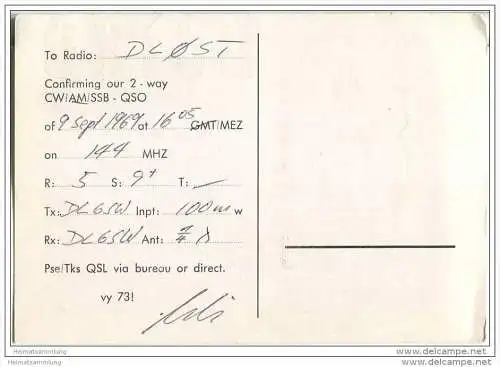 To Radio: DLØST
Confirming our 2 - way
CW/AM/SSB - QSO
of 9 Sept 1969 at 16 05 GMT/MEZ
on 144 MHZ
R: 5 S: 9+ T: —
Tx: DL6SW Inpt: 100m w
Rx: DL6SW Ant: λ
Pse/Tks QSL via bureau or direct.
vy 73!
Heimatsammlung
Heimatsammlung
www.delcampe.net